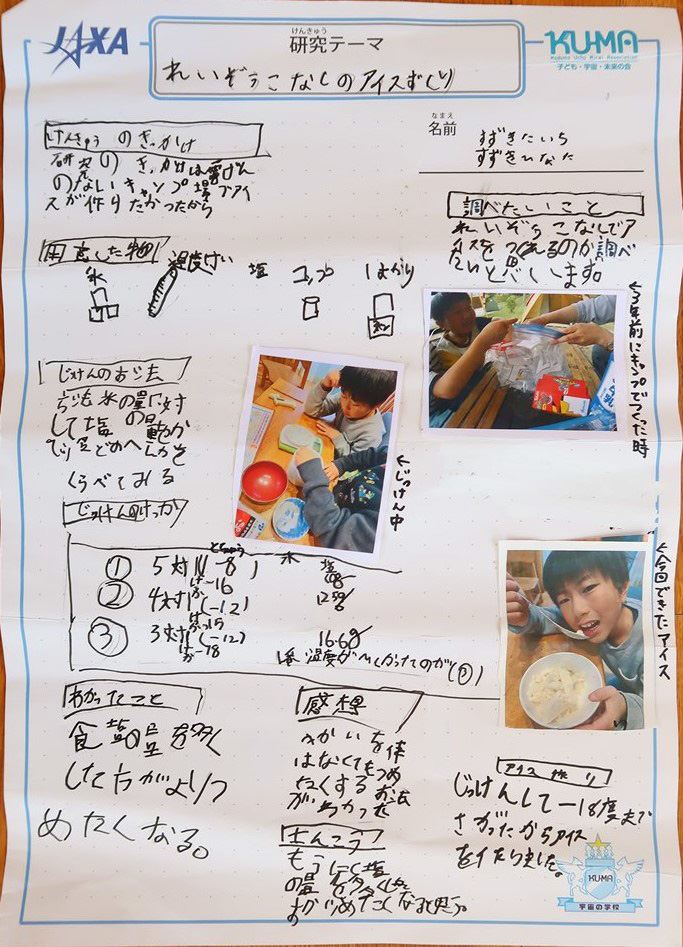 JAXA
けんきゅう
研究テーマ
れいぞうこなしのアイスずくり
KU-MA
Kodomo Uchu Mirai Association
子ども・宇宙・未来の会
なまえ
名前
すずきたいち
すずきひなた
けんきゅうのきっかけ
研究のきっかけは電げん
のないキャンプ場でアイ
スが作りたかったから
調べたいこと
れいぞうこなしでア
イスをつくれるのか調べ
たいと思いします。
用意した物
氷
温度けい
塩
コップ
はかり
←3年前にキャンプでつくった時
じっけんのお法
お法 氷の量に対
して塩の量
くらべてみる
←じっけん中
じっけんのけっか
氷
塩
① 5対1(-8)
けっか-16
② 4対1(-12)
12.5g
けっか-15
③ 3対1(-12)
16.6g
けっか-18
1番温度が
←今回できたアイス
わかったこと
食塩の量を多く
した方がよりつ
めたくなる。
感想
きかいを使
はなくてもつめ
たくするお法
がわかった
アイス作り
じっけんして-18度まで
さがったからアイス
を作たりました。
もうに塩
の量を多くした
KU-MA
宇宙の学校